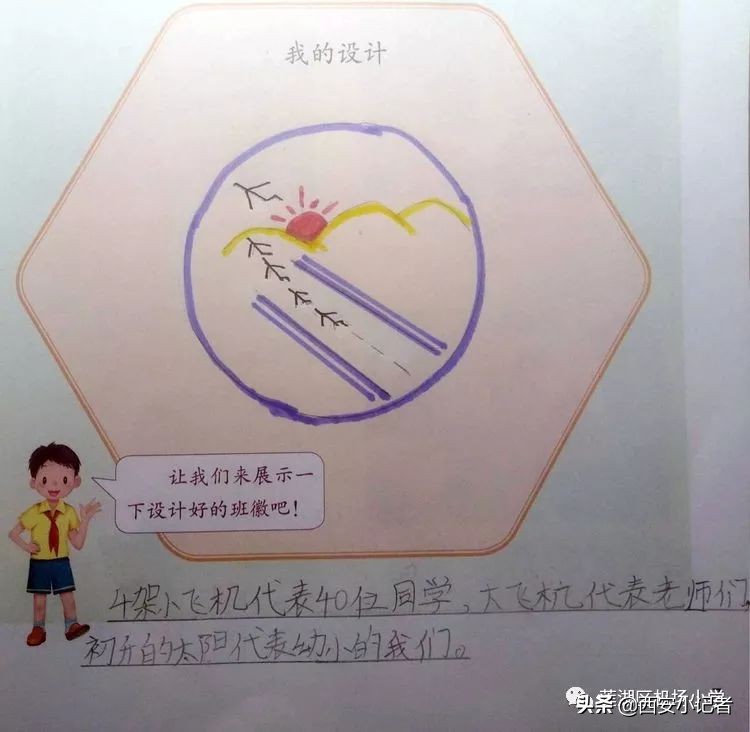 我的设计
让我们来展示一
下设计好的班徽吧！
4架小飞机代表40位同学、大飞机代表老师们，
初升的太阳代表幼小的我们。
莲湖区机场小学
头条@西安小记者